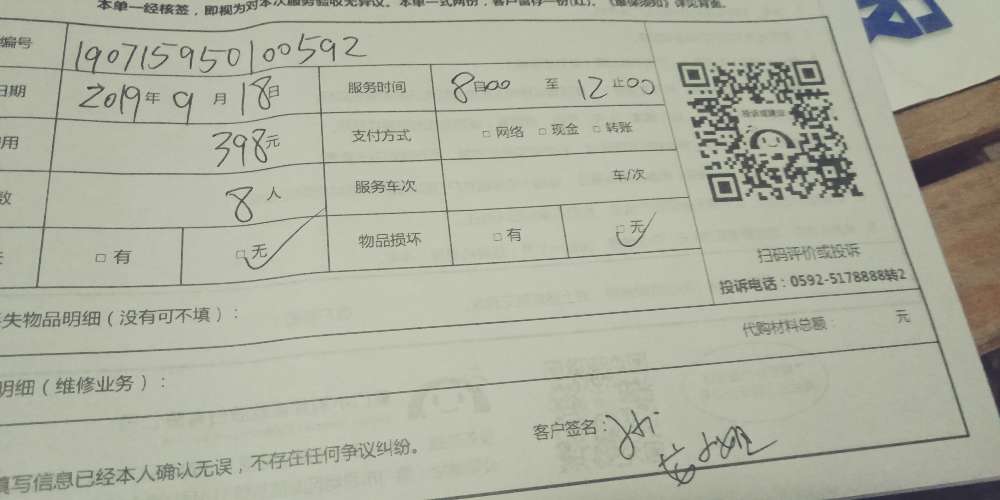 本单一经核签，即视为对本次服务验收无异议。本单一式两份，客户留存一份(红)。《售保须知》详见背面。
编号 190715950100592
日期 2019年9月18日 服务时间 8自00 至 12止00
用 398元 支付方式 □网络 □现金 □转账
数 8人 服务车次 车/次
□有 □无 物品损坏 □有 □无
投诉或建议
扫码评价或投诉
投诉电话：0592-5178888转2
失物品明细（没有可不填）：
代购材料总额： 元
明细（维修业务）：
填写信息已经本人确认无误，不存在任何争议纠纷。 客户签名：